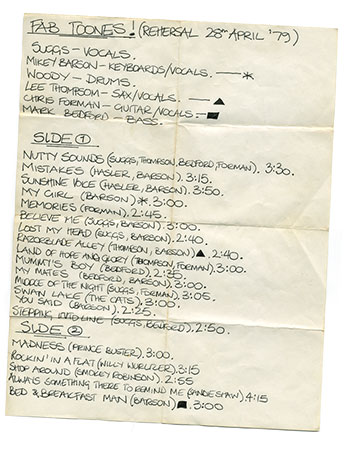 FAB TOONES! (REHERSAL 28TH APRIL '79)
SUGGS - VOCALS.
MIKEY BARSON - KEYBOARDS/VOCALS. — *
WOODY - DRUMS.
LEE THOMPSOM - SAX/VOCALS. — ▲
CHRIS FORMAN - GUITAR/VOCALS — ■
MARK BEDFORD - BASS.
SIDE ①
NUTTY SOUNDS (SUGGS, THOMPSON, BEDFORD, FORMAN). 3:30.
MISTAKES (HASLER, BARSON). 3:15.
SUNSHINE VOICE (HASLER, BARSON). 3:50.
MY GIRL (BARSON) *. 3:00.
MEMORIES (FORMAN). 2:45.
BELIEVE ME (SUGGS, BARSON). 3:00.
LOST MY HEAD (SUGGS, BARSON). 2:40.
RAZORBLADE ALLEY (THOMPSON, BARSON) ▲. 2:40.
LAND OF HOPE AND GLORY (THOMPSON, FORMAN). 3:00.
MUMMY'S BOY (BEDFORD). 2:35.
MY MATES (BEDFORD, BARSON). 3:00.
MIDDLE OF THE NIGHT (SUGGS, FORMAN). 3:00.
SWAN LAKE (THE CATS). 3:05.
YOU SAID (BARSON). 2:25.
STEPPING INTO LINE (SUGGS, BEDFORD). 2:50.
SIDE ②
MADNESS (PRINCE BUSTER). 3:00.
ROCKIN' IN A FLAT (WILLY WURLITZER). 3:15
SHOP AROUND (SMOKEY ROBINSON). 2:55
ALWAYS SOMETHING THERE TO REMIND ME (SANDIE SHAW) 4:15
BED & BREAKFAST MAN (BARSON) ■. 3:00